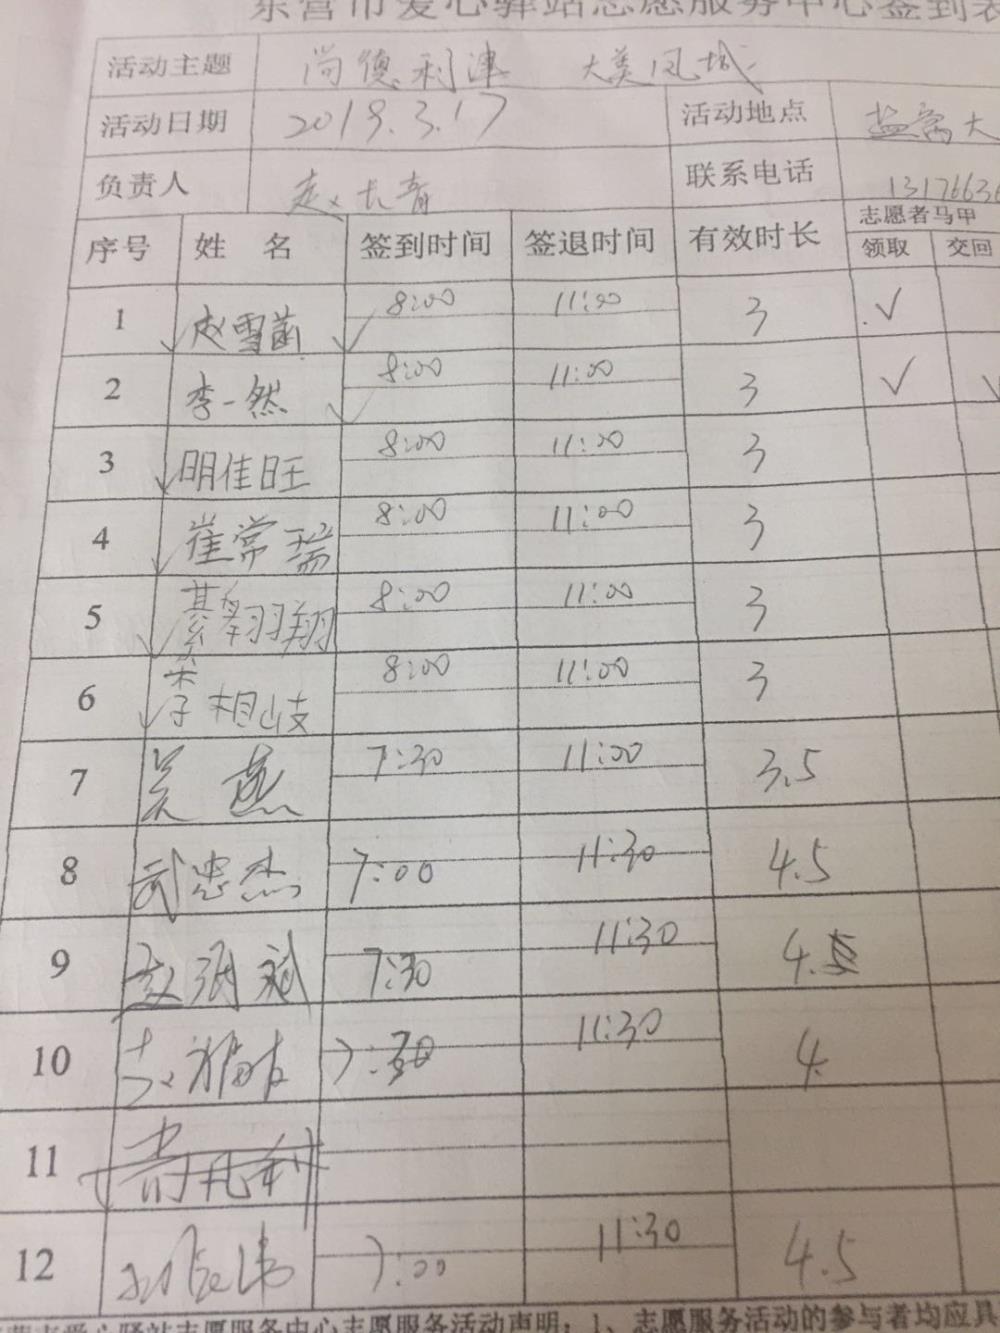 东营市爱心驿站志愿服务中心签到表
活动主题 尚德利津 大美凤城
活动日期 2019.3.17 活动地点
负责人 赵长青 联系电话 1317663
序号 姓 名 签到时间 签退时间 有效时长 志愿者马甲
领取 交回
1 赵雪菡 8:00 11:00 3 ✓
2 李一然 8:00 11:00 3 ✓
3 明佳旺 8:00 11:00 3
4 崔常瑞 8:00 11:00 3
5 綦翔翔 8:00 11:00 3
6 李相岐 8:00 11:00 3
7 吴燕 7:30 11:00 3.5
8 武忠杰 7:00 11:30 4.5
9 7:30 11:30 4
10 7:30 11:30 4
11
12 7:00 11:30 4.5
爱心驿站志愿服务中心志愿服务活动声明：1、志愿服务活动的参与者均应具